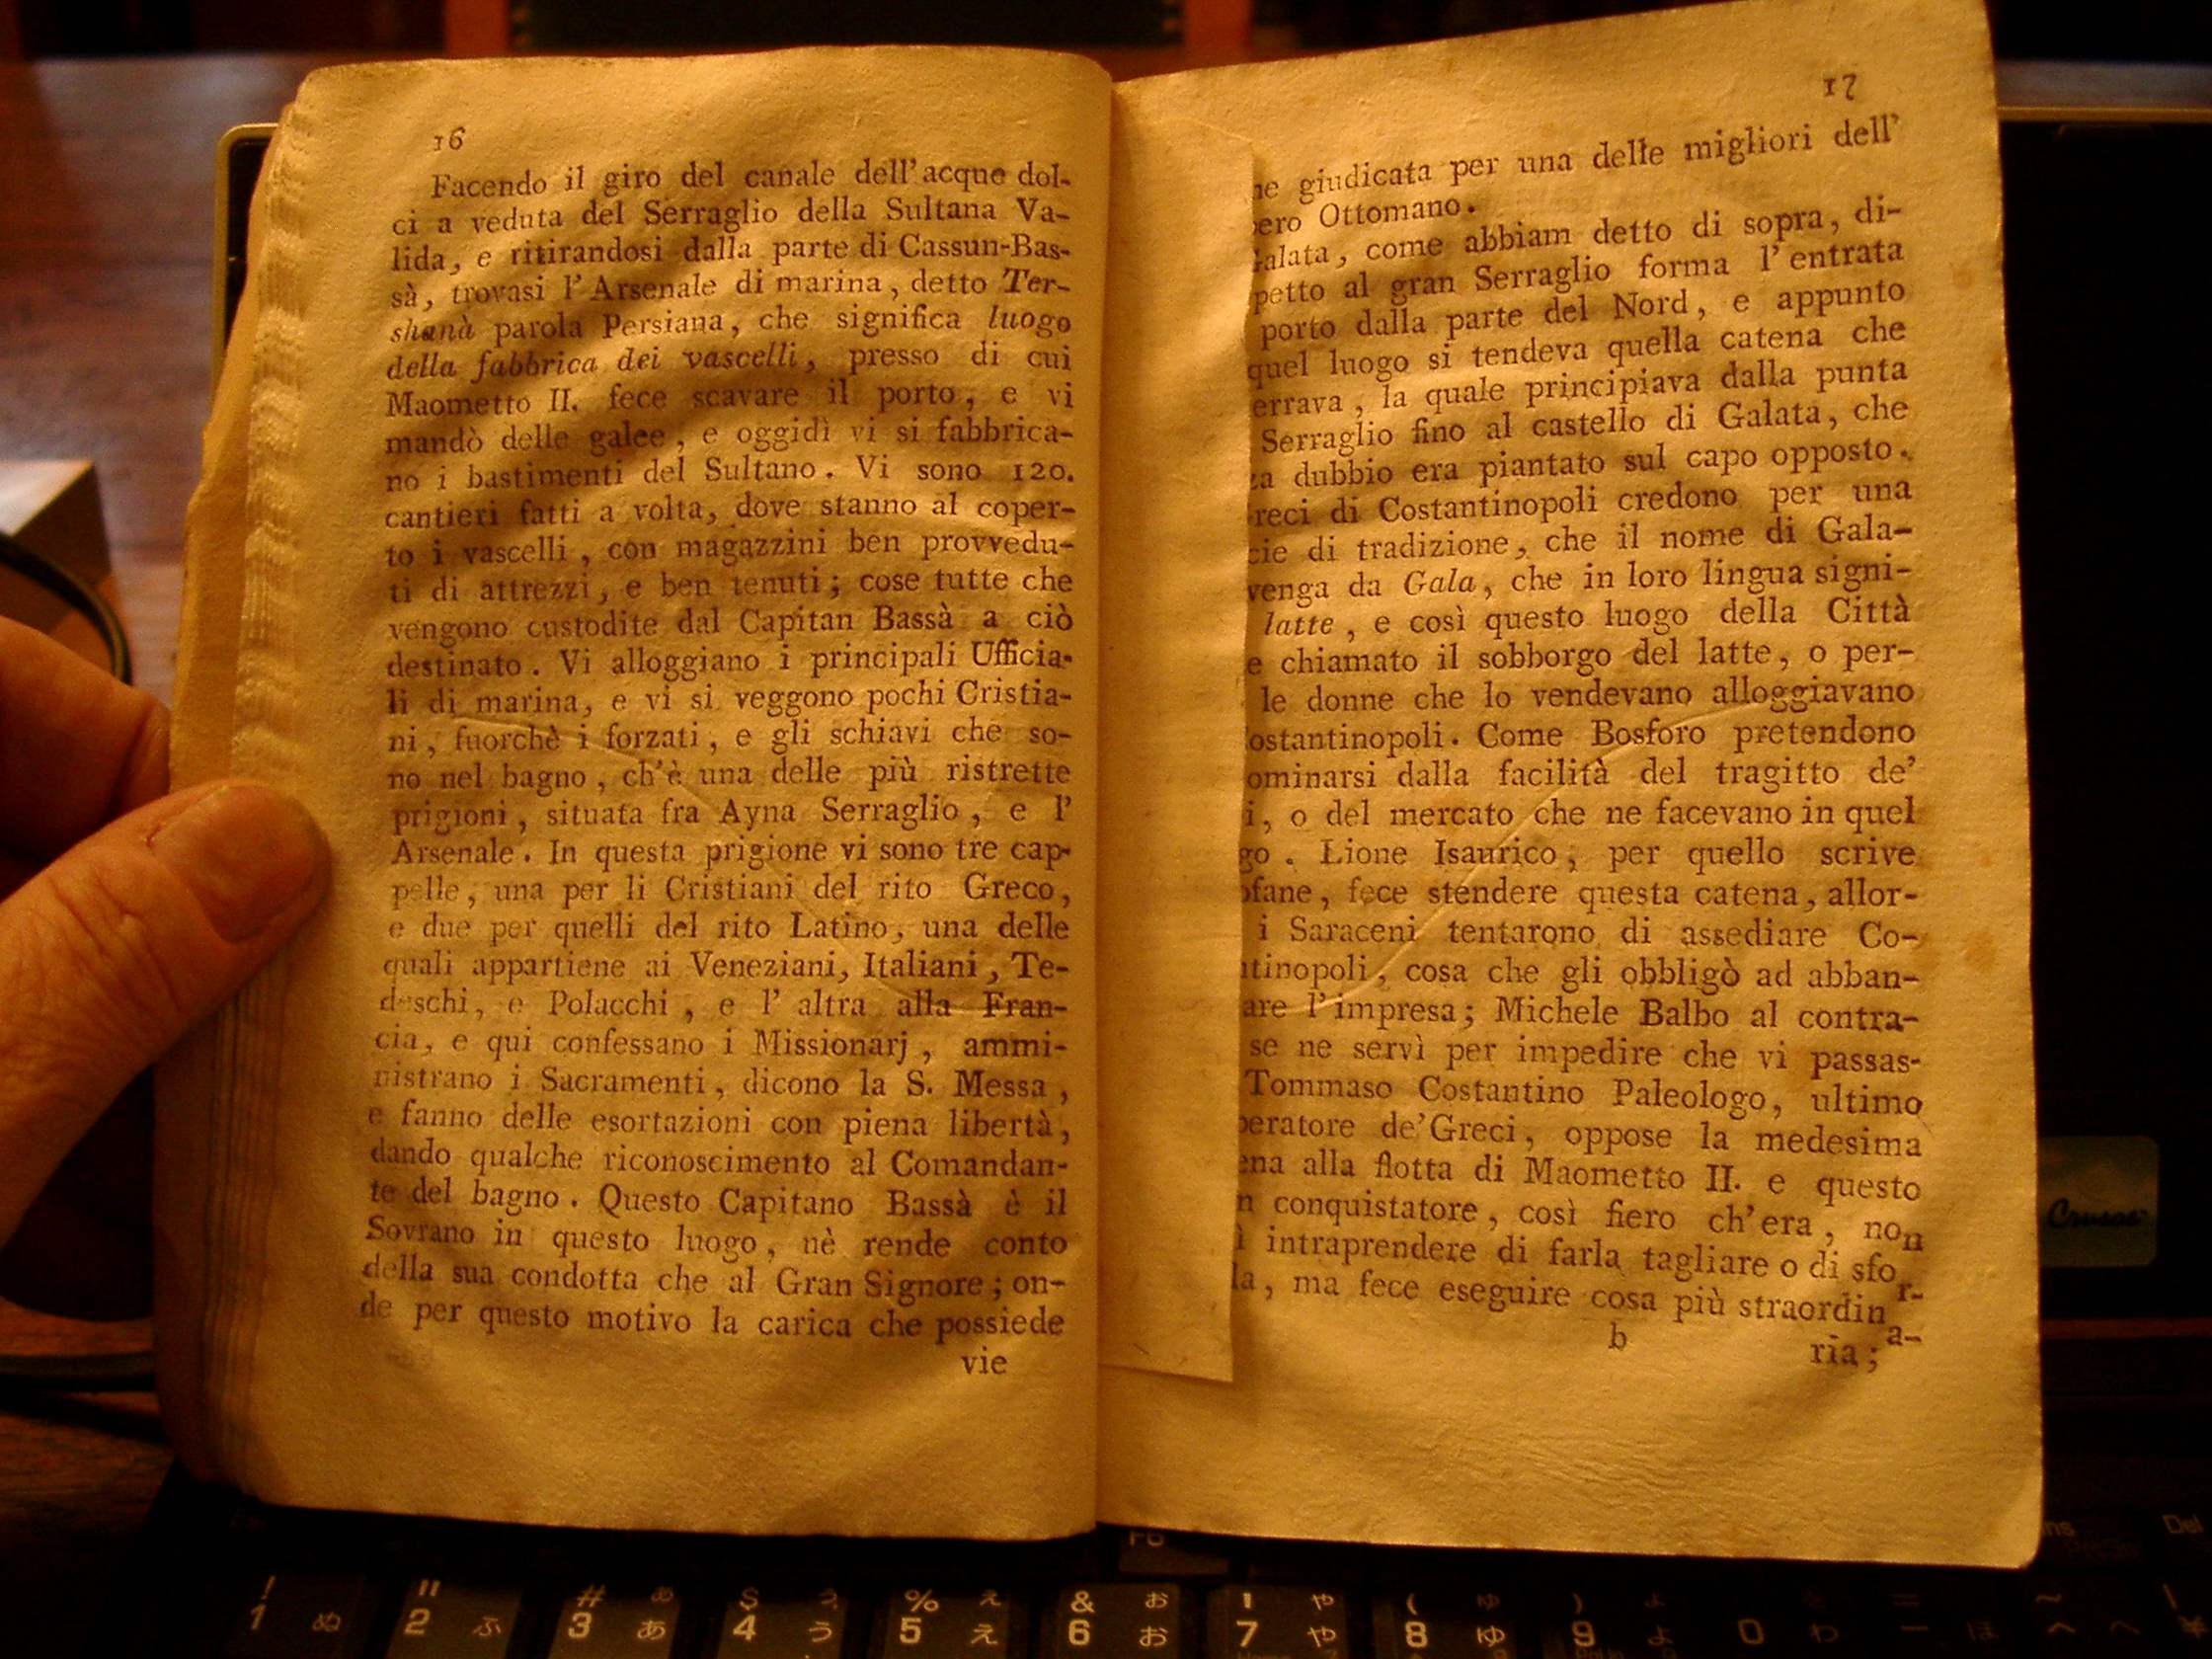 16
Facendo il giro del canale dell'acque dol-
ci a veduta del Serraglio della Sultana Va-
lida, e ritirandosi dalla parte di Cassun-Bas-
sà, trovasi l'Arsenale di marina, detto Ter-
shanà parola Persiana, che significa luogo
della fabbrica dei vascelli, presso di cui
Maometto II. fece scavare il porto, e vi
mandò delle galee, e oggidì vi si fabbrica-
no i bastimenti del Sultano. Vi sono 120.
cantieri fatti a volta, dove stanno al coper-
to i vascelli, con magazzini ben provvedu-
ti di attrezzi, e ben tenuti; cose tutte che
vengono custodite dal Capitan Bassà a ciò
destinato. Vi alloggiano i principali Ufficia-
li di marina, e vi si veggono pochi Cristia-
ni, fuorchè i forzati, e gli schiavi che so-
no nel bagno, ch'è una delle più ristrette
prigioni, situata fra Ayna Serraglio, e l'
Arsenale. In questa prigione vi sono tre cap-
pelle, una per li Cristiani del rito Greco,
e due per quelli del rito Latino, una delle
quali appartiene ai Veneziani, Italiani, Te-
deschi, e Polacchi, e l' altra alla Fran-
cia, e qui confessano i Missionarj, ammi-
nistrano i Sacramenti, dicono la S. Messa,
e fanno delle esortazioni con piena libertà,
dando qualche riconoscimento al Comandan-
te del bagno. Questo Capitano Bassà è il
Sovrano in questo luogo, nè rende conto
della sua condotta che al Gran Signore; on-
de per questo motivo la carica che possiede
vie
17
ne giudicata per una delle migliori dell'
pero Ottomano.
alata, come abbiam detto di sopra, di-
petto al gran Serraglio forma l'entrata
porto dalla parte del Nord, e appunto
quel luogo si tendeva quella catena che
errava, la quale principiava dalla punta
Serraglio fino al castello di Galata, che
za dubbio era piantato sul capo opposto.
reci di Costantinopoli credono per una
cie di tradizione, che il nome di Gala-
venga da Gala, che in loro lingua signi-
latte, e così questo luogo della Città
e chiamato il sobborgo del latte, o per-
le donne che lo vendevano alloggiavano
ostantinopoli. Come Bosforo pretendono
ominarsi dalla facilità del tragitto de'
i, o del mercato che ne facevano in quel
go. Lione Isaurico, per quello scrive
ofane, fece stendere questa catena, allor-
i Saraceni tentarono di assediare Co-
ntinopoli, cosa che gli obbligò ad abban-
are l'impresa; Michele Balbo al contra-
se ne servì per impedire che vi passas-
Tommaso Costantino Paleologo, ultimo
peratore de'Greci, oppose la medesima
ena alla flotta di Maometto II. e questo
n conquistatore, così fiero ch'era, non
ì intraprendere di farla tagliare o di sfor-
la, ma fece eseguire cosa più straordina-
b ria;
Crusoe
F6
Ins
Del
! 1 ぬ
" 2 ふ
# 3 あ ぁ
$ 4 う ぅ
% 5 え ぇ
& 6 お ぉ
' 7 や ゃ
( 8 ゆ ゅ
) 9 よ ょ
0 わ